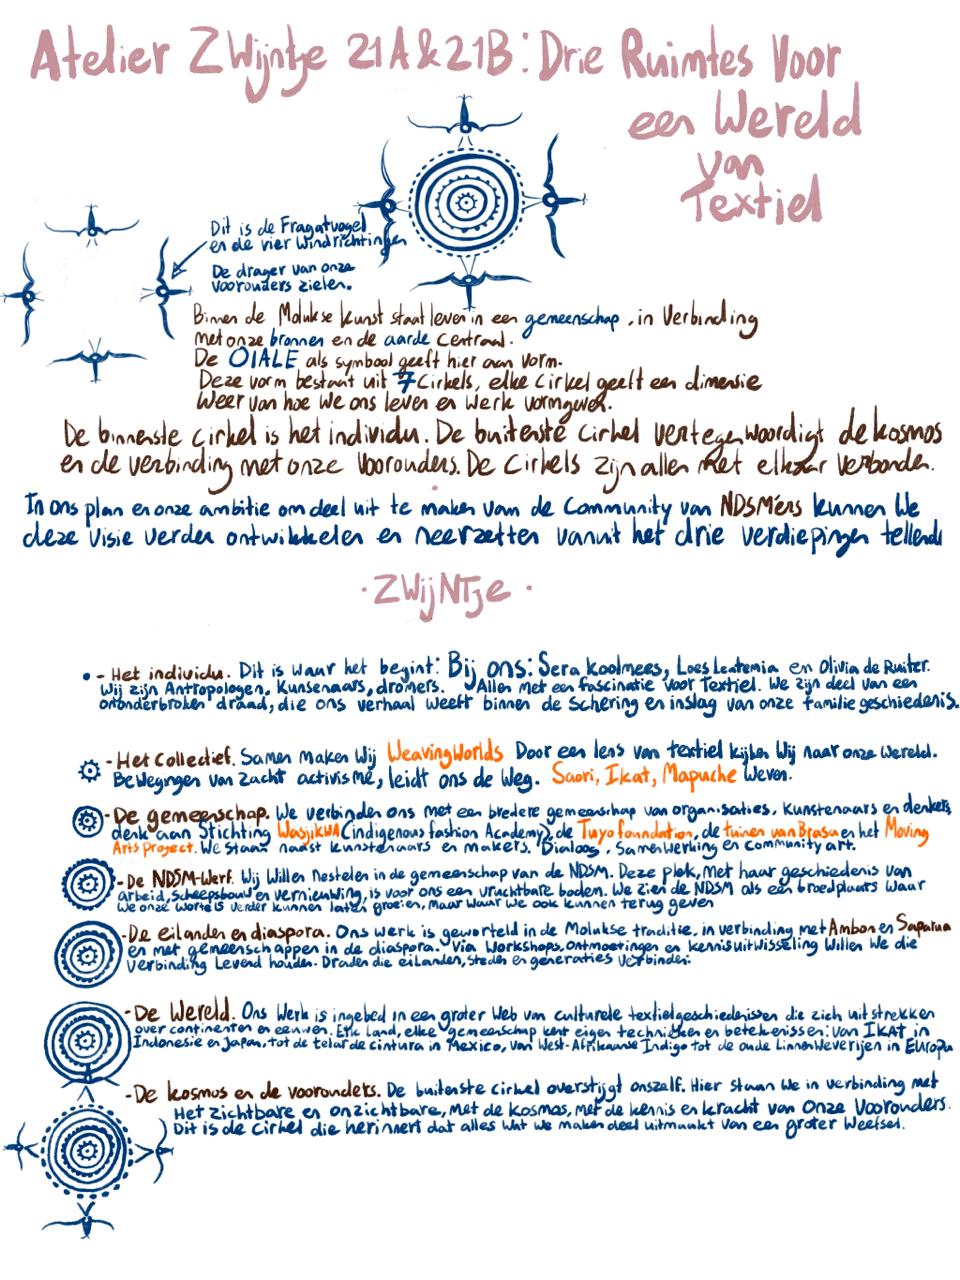 Atelier Zwijntje 21A & 21B: Drie Ruimtes Voor
een Wereld
van
Textiel
Dit is de Fragatvogel
en de vier windrichtingen
De drager van onze
voorouders zielen.
Binnen de Molukse kunst staat leven in een gemeenschap, in verbinding
met onze bronnen en de aarde centraal.
De OIALE als symbool geeft hier aan vorm.
Deze vorm bestaat uit 7 cirkels, elke cirkel geeft een dimensie
weer van hoe we ons leven en werk vormgeven.
De binnenste cirkel is het individu. De buitenste cirkel vertegenwoordigt de kosmos
en de verbinding met onze voorouders. De cirkels zijn allen met elkaar verbonden.
In ons plan en onze ambitie om deel uit te maken van de Community van NDSM'ers kunnen we
deze visie verder ontwikkelen en neerzetten vanuit het drie verdiepingen tellende
· ZWijNTje ·
• - Het individu. Dit is waar het begint: Bij ons: Sera Koolmees, Loes Leatemia en Olivia de Ruiter.
Wij zijn Antropologen, Kunsenaars, dromers. Allen met een fascinatie voor Textiel. We zijn deel van een
ononderbroken draad, die ons verhaal weeft binnen de schering en inslag van onze familie geschiedenis.
- Het Collectief. Samen maken wij WeavingWorlds Door een lens van textiel kijken wij naar onze wereld.
Bewegingen van zacht activisme, leidt ons de weg. Saori, Ikat, Mapuche weven.
- De gemeenschap. We verbinden ons met een bredere gemeenschap van organisaties, kunstenaars en denkers,
denk aan Stichting Wasjikwa (indigenous fashion Academy), de Tuyo foundation, de tuinen van Brasa en het Moving
Arts Project. We staan naast kunstenaars en makers. Dialoog, samenwerking en community art.
- De NDSM-Werf. Wij willen nestelen in de gemeenschap van de NDSM. Deze plek, met haar geschiedenis van
arbeid, scheepsbouw en vernieuwing, is voor ons een vruchtbare bodem. We zien de NDSM als een broedplaats waar
we onze wortels verder kunnen laten groeien, maar waar we ook kunnen terug geven
- De eilanden en diaspora. Ons werk is geworteld in de Molukse traditie, in verbinding met Ambon en Saparua
en met gemeenschappen in de diaspora. Via workshops, ontmoetingen en kennisuitwisseling willen we die
verbinding levend houden. Draden die eilanden, steden en generaties verbinden.
- De Wereld. Ons werk is ingebed in een groter web van culturele textielgeschiedenissen die zich uitstrekken
over continenten en eeuwen. Elk land, elke gemeenschap kent eigen technieken en betekenissen: van IKAT in
Indonesie en Japan, tot de telar de cintura in Mexico, van West-Afrikaanse Indigo tot de oude linnenweverijen in Europa
- De kosmos en de voorouders. De buitenste cirkel overstijgt onszelf. Hier staan we in verbinding met
Het zichtbare en onzichtbare, met de kosmos, met de kennis en kracht van onze voorouders.
Dit is de cirkel die herinnert dat alles wat we maken deel uitmaakt van een groter weefsel.